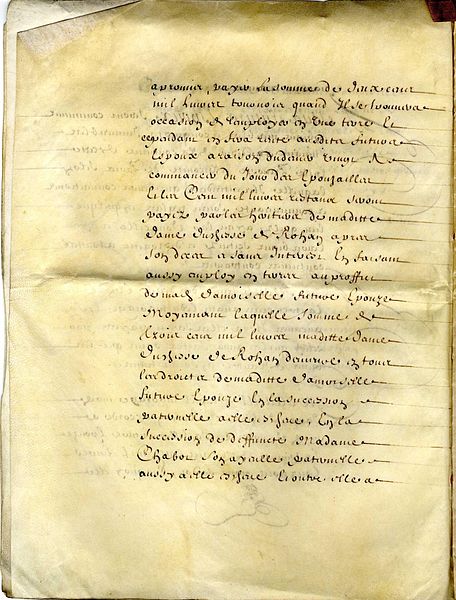 a promis payer la somme de deux cens
mil livres tournois quand Il se trouvera
occasion de l'employer en une terre Et
cependant en fera rente audit futur
Espoux a raison du denier vingt A
commancer du Jour des Espousailles
Et les Cent mil livres restans seront
payez par les heritiers de maditte
dame Duchesse de Rohan apres
son deces sans Interest En faisant
aussy employ en terres au proffit
de mad. Damoiselle future Epouze
Moyennant laquelle somme de
trois cens mil livres maditte Dame
Duchesse de Rohan demeure en tous
les droits de maditte Damoiselle
future Epouze En la succession
paternelle a elle escheue, En la
succession de deffuncte Madame
Chabot son ayeulle paternelle
aussy a elle escheue Et outre elle a